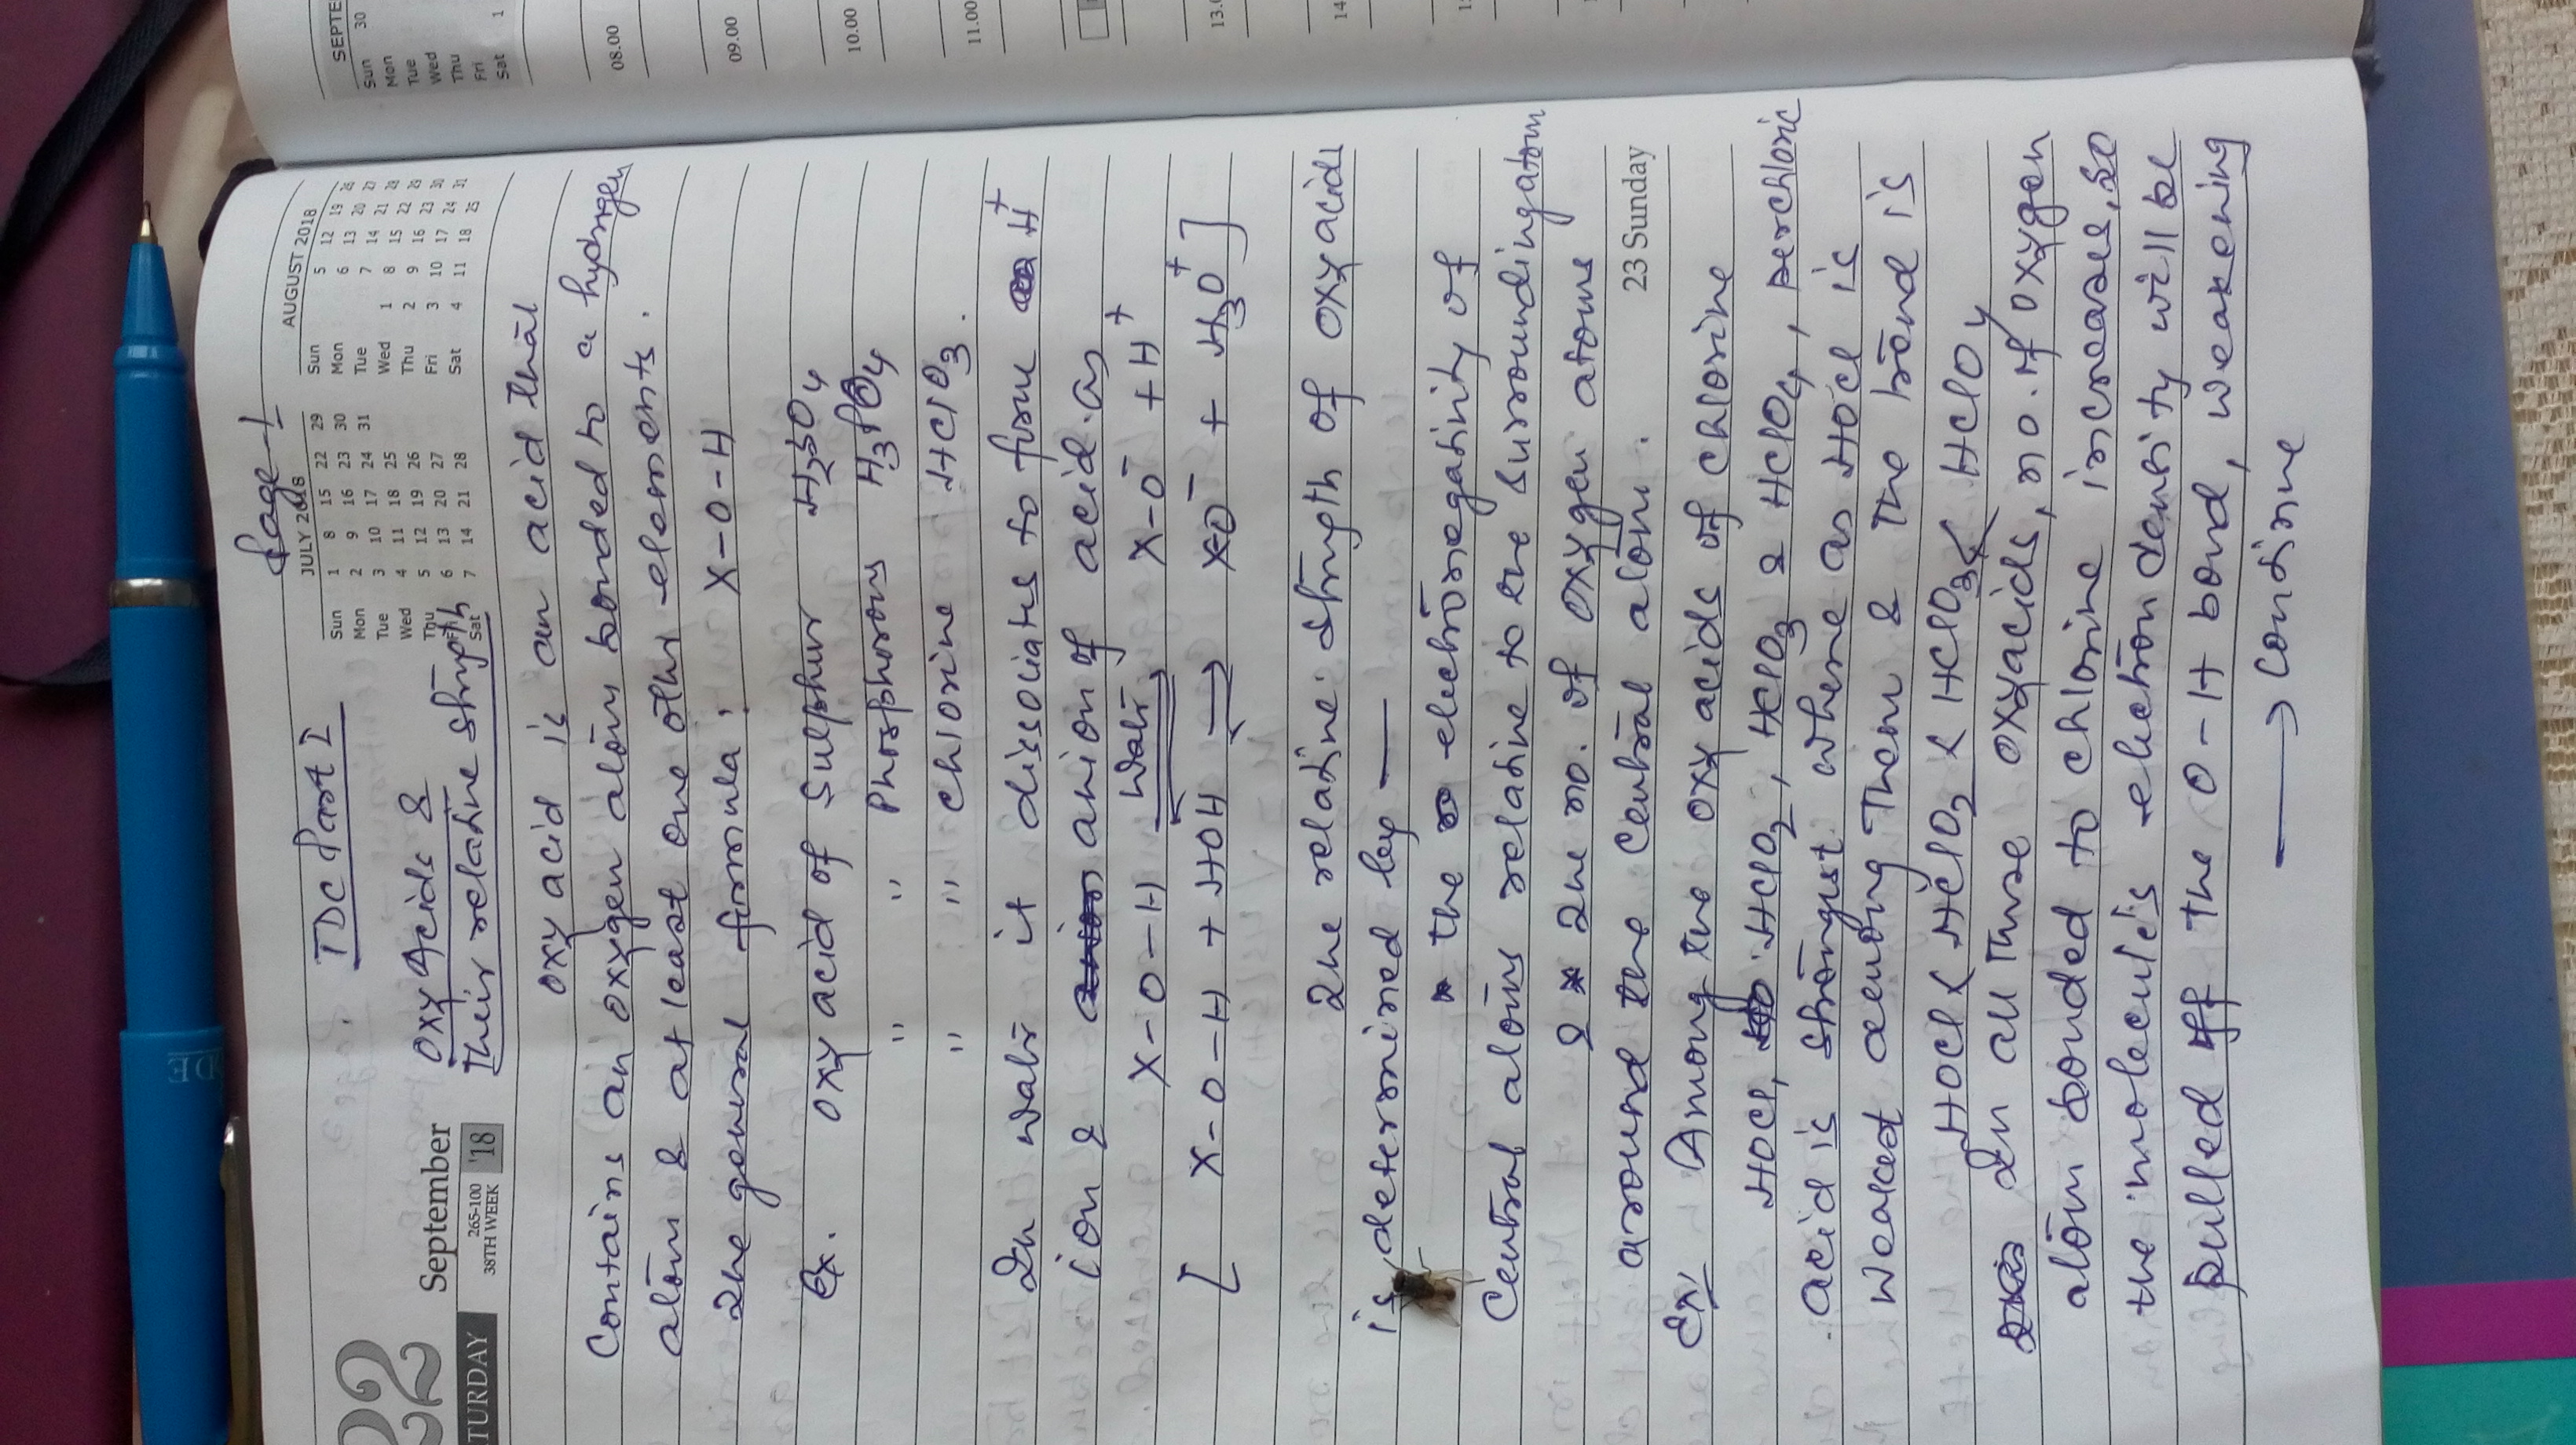 Page-1
TDC Part I
JULY 2018
Sun 1 8 15 22 29
Mon 2 9 16 23 30
Tue 3 10 17 24 31
Wed 4 11 18 25
Thu 5 12 19 26
Fri 6 13 20 27
Sat 7 14 21 28
AUGUST 2018
Sun 5 12 19 26
Mon 6 13 20 27
Tue 7 14 21 28
Wed 1 8 15 22 29
Thu 2 9 16 23 30
Fri 3 10 17 24 31
Sat 4 11 18 25
22 September
TURDAY
265-100
38TH WEEK '18
Oxy Acids &
Their relative strength
Oxy acid is an acid that
Contains an oxygen atom bonded to a hydrogen
atom & at least one other elements.
The general formula: X-O-H
Ex. oxy acid of sulphur H2SO4
" " Phosphorous H3PO4
" " chlorine HClO3.
In water it dissociates to form H+
ion & anion of acid. as
X-O-H Water X-O- + H+
[ X-O-H + HOH ⇌ XO- + H3O+ ]
The relative strength of oxyacids
is determined by —
* the electronegativity of
Central atoms relative to the surrounding atom
& * The no. of oxygen atoms
23 Sunday
around the central atom.
Ex/ Among the oxy acids of chlorine
HOCl, HClO2, HClO3 & HClO4, perchloric
acid is strongest where as HOCl is
weakest among them & the trend is
HOCl < HClO2 < HClO3 < HClO4
In all these oxyacids, no. of oxygen
atom bonded to chlorine increases, so
the molecule's electron density will be
pulled off the O-H bond, weakening
→ continue
SEPTE
Sun 30
Mon
Tue
Wed
Thu
Fri
Sat 1
08.00
09.00
10.00
11.00
13.0
14